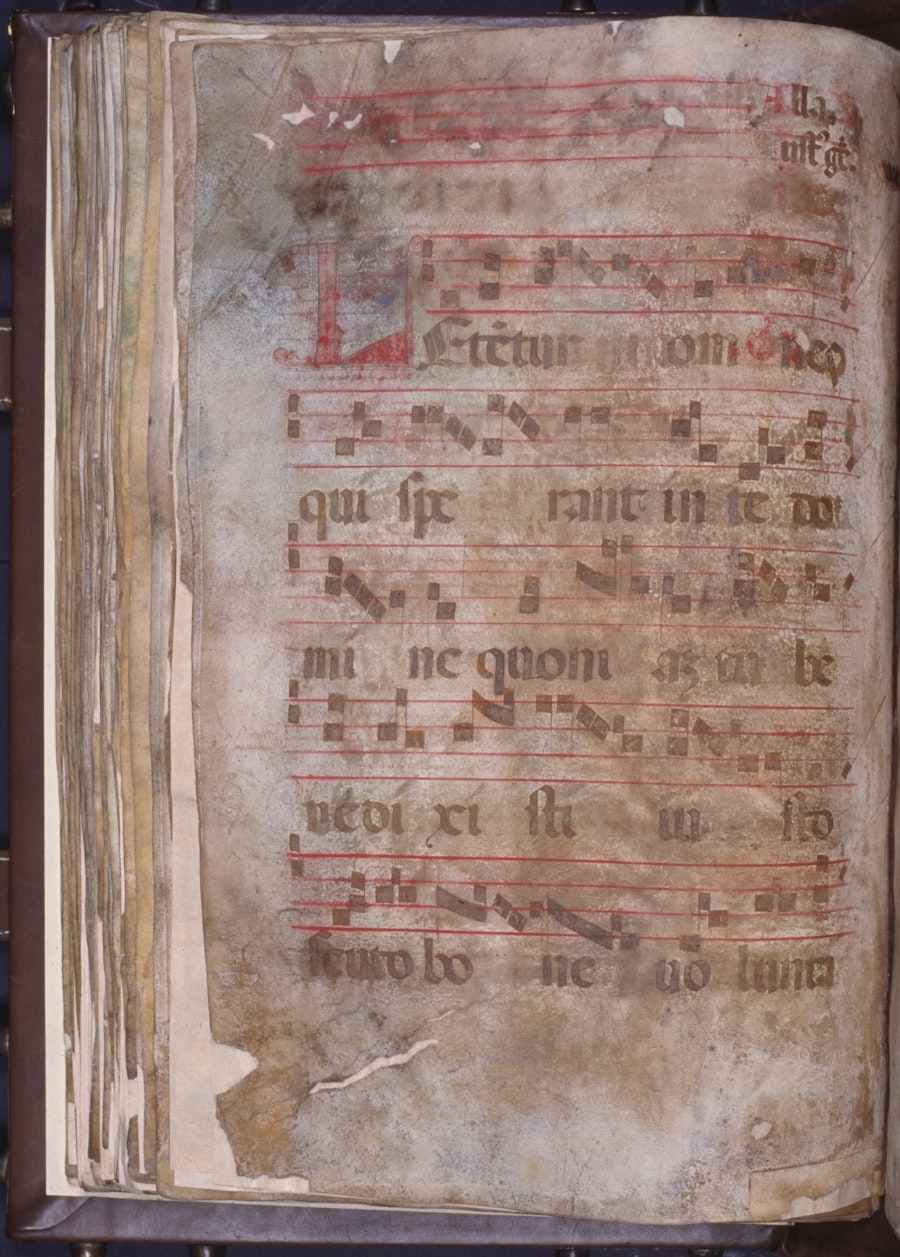 Letētur om neq
qui spe rant in te do
mi ne quoni aʒ tu be
nēdi xi sti iu sto
scuto bo ne uō lunta